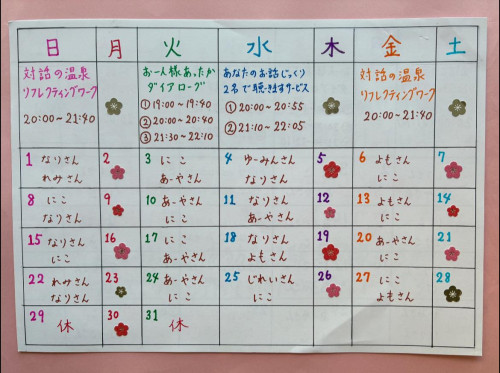 日 月 火 水 木 金 土
対話の温泉
リフレクティングワーク
20:00~21:40
お一人様あったか
ダイアローグ
①19:00~19:40
②20:00~20:40
③21:30~22:10
あなたのお話じっくり
2名で聴きますサービス
①20:00~20:55
②21:10~22:05
対話の温泉
リフレクティングワーク
20:00~21:40
1 なりさん
れみさん
2
3 にこ
あーやさん
4 ゆーみんさん
なりさん
5
6 よもさん
にこ
7
8 にこ
なりさん
9
10 あーやさん
にこ
11 なりさん
あーやさん
12
13 よもさん
にこ
14
15 なりさん
にこ
16
17 にこ
あーやさん
18 なりさん
よもさん
19
20 あーやさん
にこ
21
22 れみさん
なりさん
23
24 あーやさん
にこ
25 じれいさん
にこ
26
27 にこ
よもさん
28
29 休
30
31 休